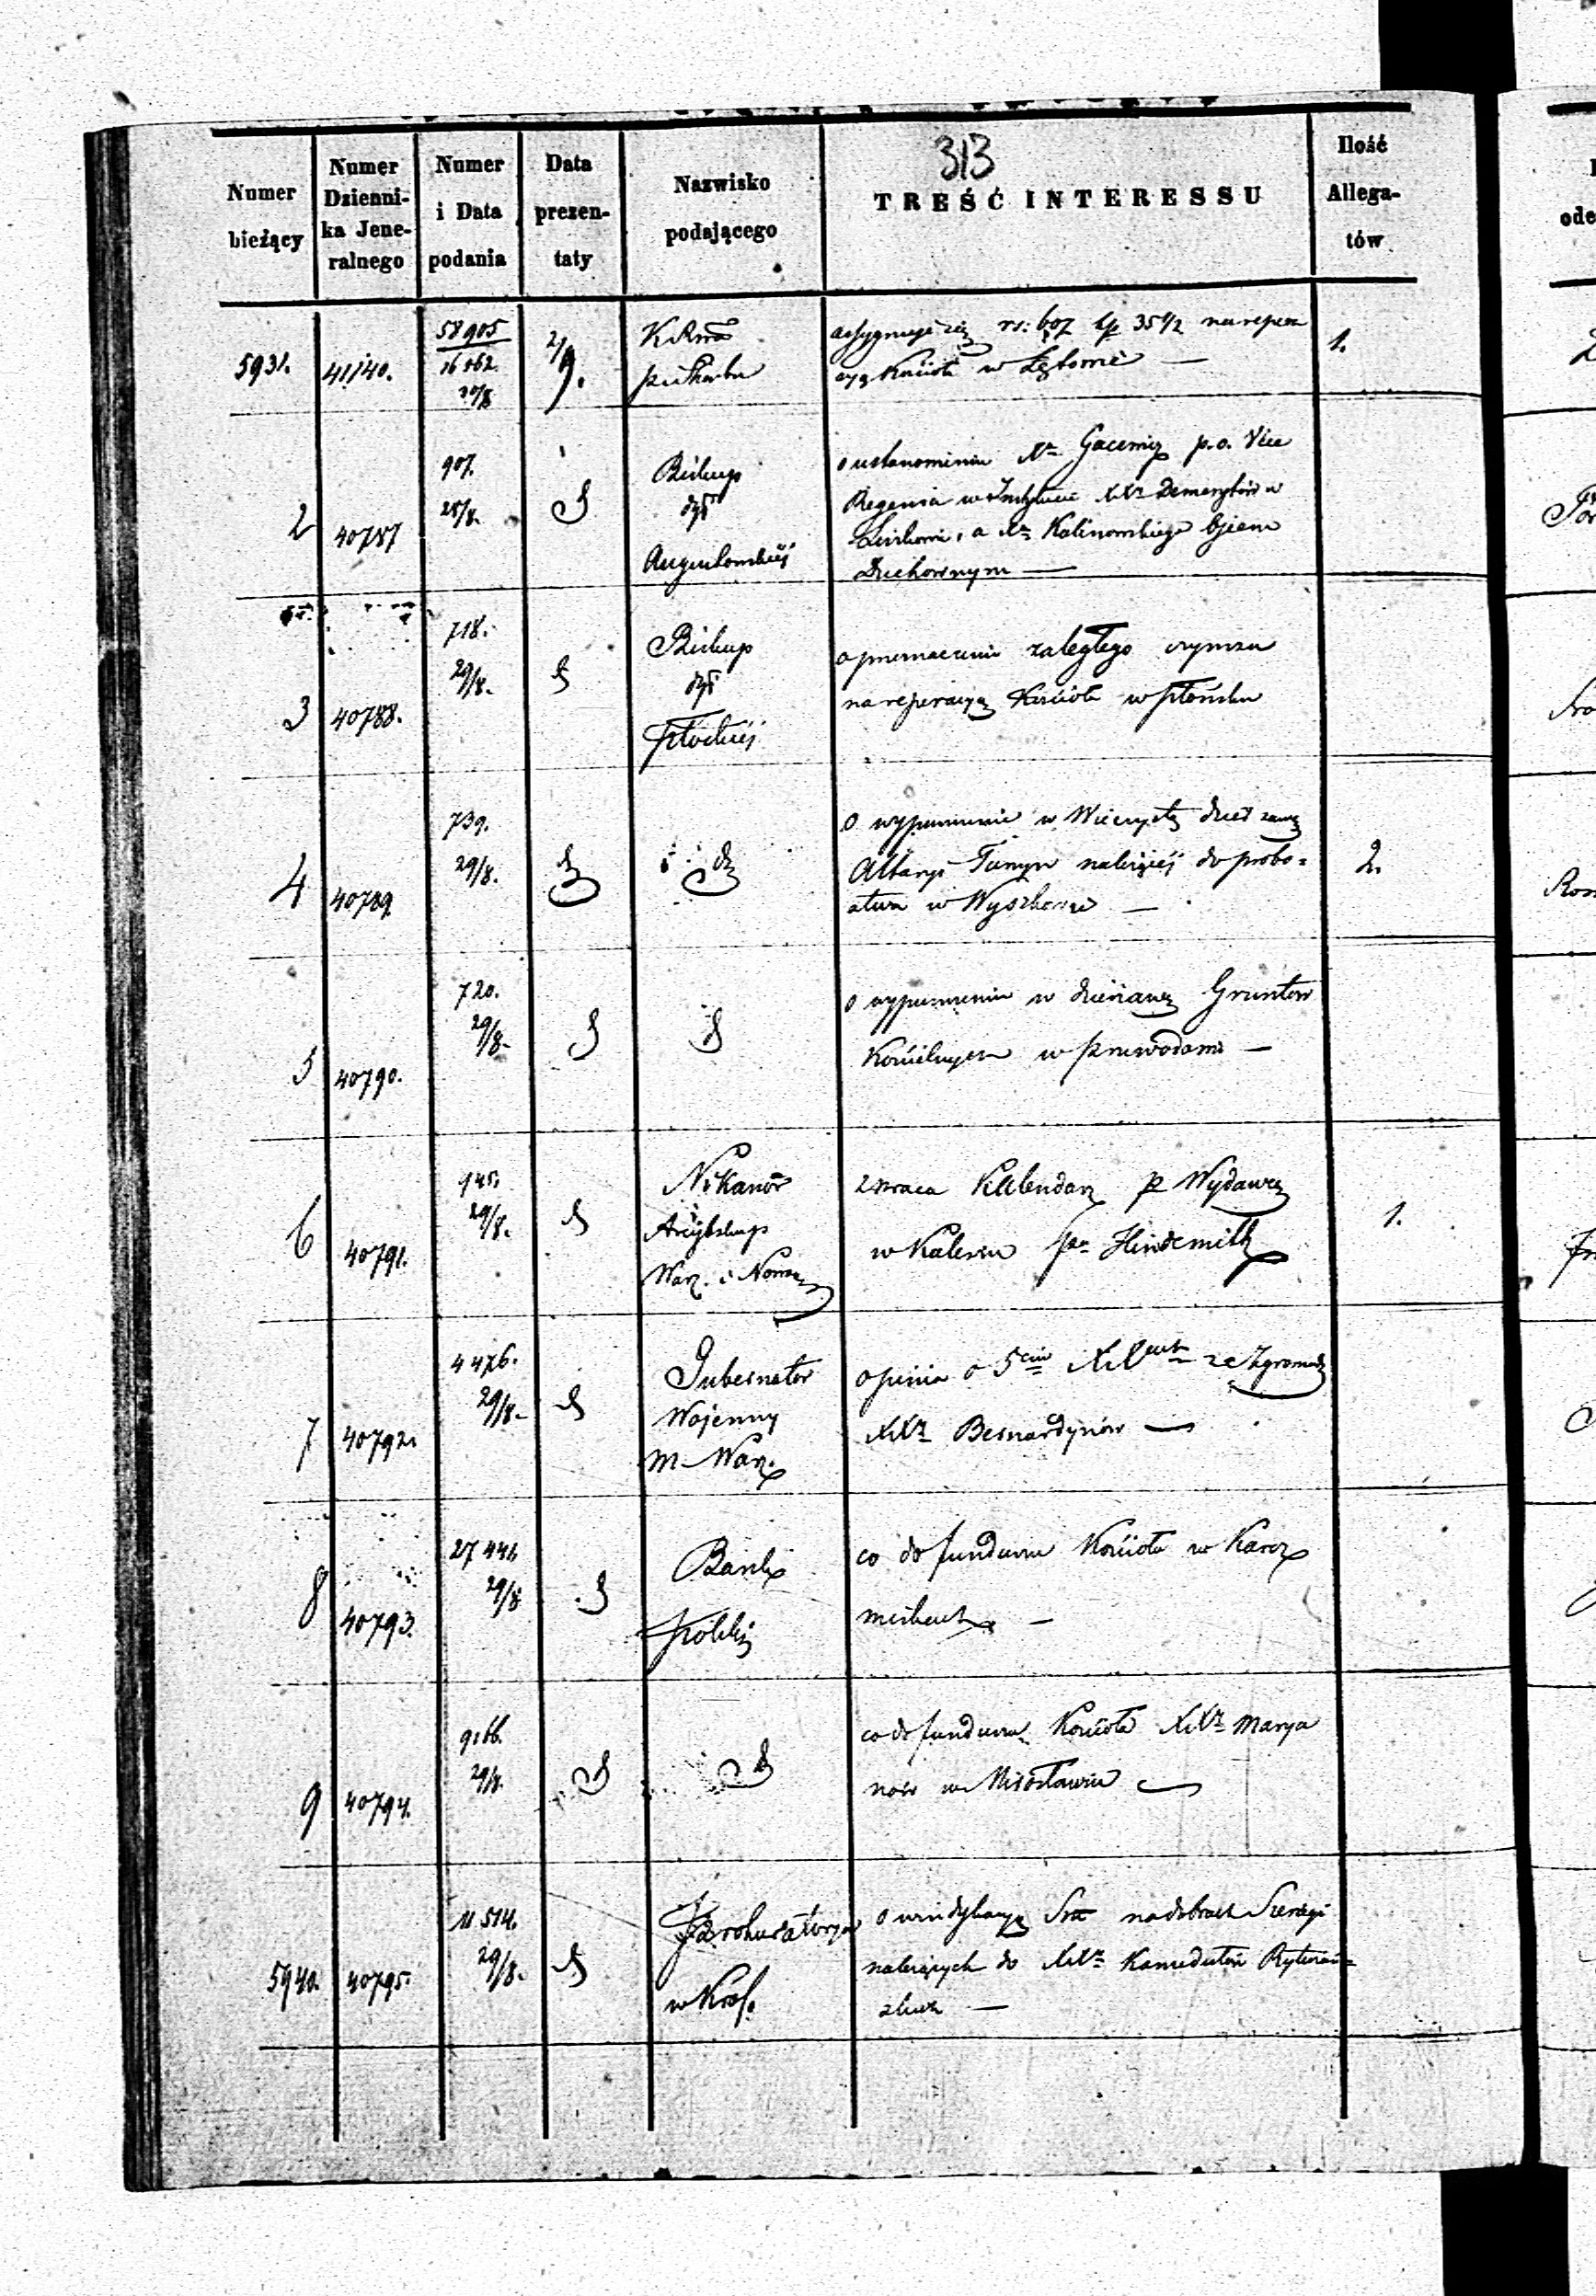 313
Numer bieżący
Numer Dzienni-ka Jene-ralnego
Numer i Data podania
Data prezen-taty
Nazwisko podającego
TREŚĆ INTERESSU
Ilość Allega-tów
5931.
41140.
58905
29/8
2/9.
assygnuje się rs: 607 kp 35 1/2 na repera
cyą Kościoła w
1.
2
40787
907.
28/8.
Biskup
dyi
Augustowskiéj
o ustanowieniu Xa p.o. Vice
Regensa w Instytucie XXy Demerytów w
a Xa Kalinowskiego Ojcem
Duchownym —
3
40788.
718.
29/8.
Biskup
dyi
Płockiéj
o przeznaczeniu zaległego czynszu
na reperacyą Kościoła w Płońsku
4
40789
739.
29/8.
o wypuszczenie w Wieczystą dzierżawę
Altaryi należącéj do probo=
stwa w Wyszkowie —
2.
5
40790.
720.
29/8.
o wypuszczeniu w dzierżawę Gruntów
Kościelnych w Przewodowie —
6
40791.
145.
29/8.
Nikanor
Arcybiskup
Warz. i Nowog
zwraca Kalendarz p Wydawcę
w Kaliszu Pa Hindemith
1.
7
40792.
4476.
29/8.
Gubernator
Wojenny
m. Warz.
opinia o 5ciu XX ze Zgromadz
XXy Bernardynów —
8
40793.
27441.
29/8
Bank
Polski
co do funduszu Kościoła w Karcz
miskach —
9
40794.
9166.
29/8.
co do funduszu Kościoła XXy Marya
nów w Mirosławiu
5940.
40795.
11514.
29/8.
Prokuratorya
w Król.
o windykacyą na dobrach
należących do XXy Kamedułów Rytwiań=
skich —